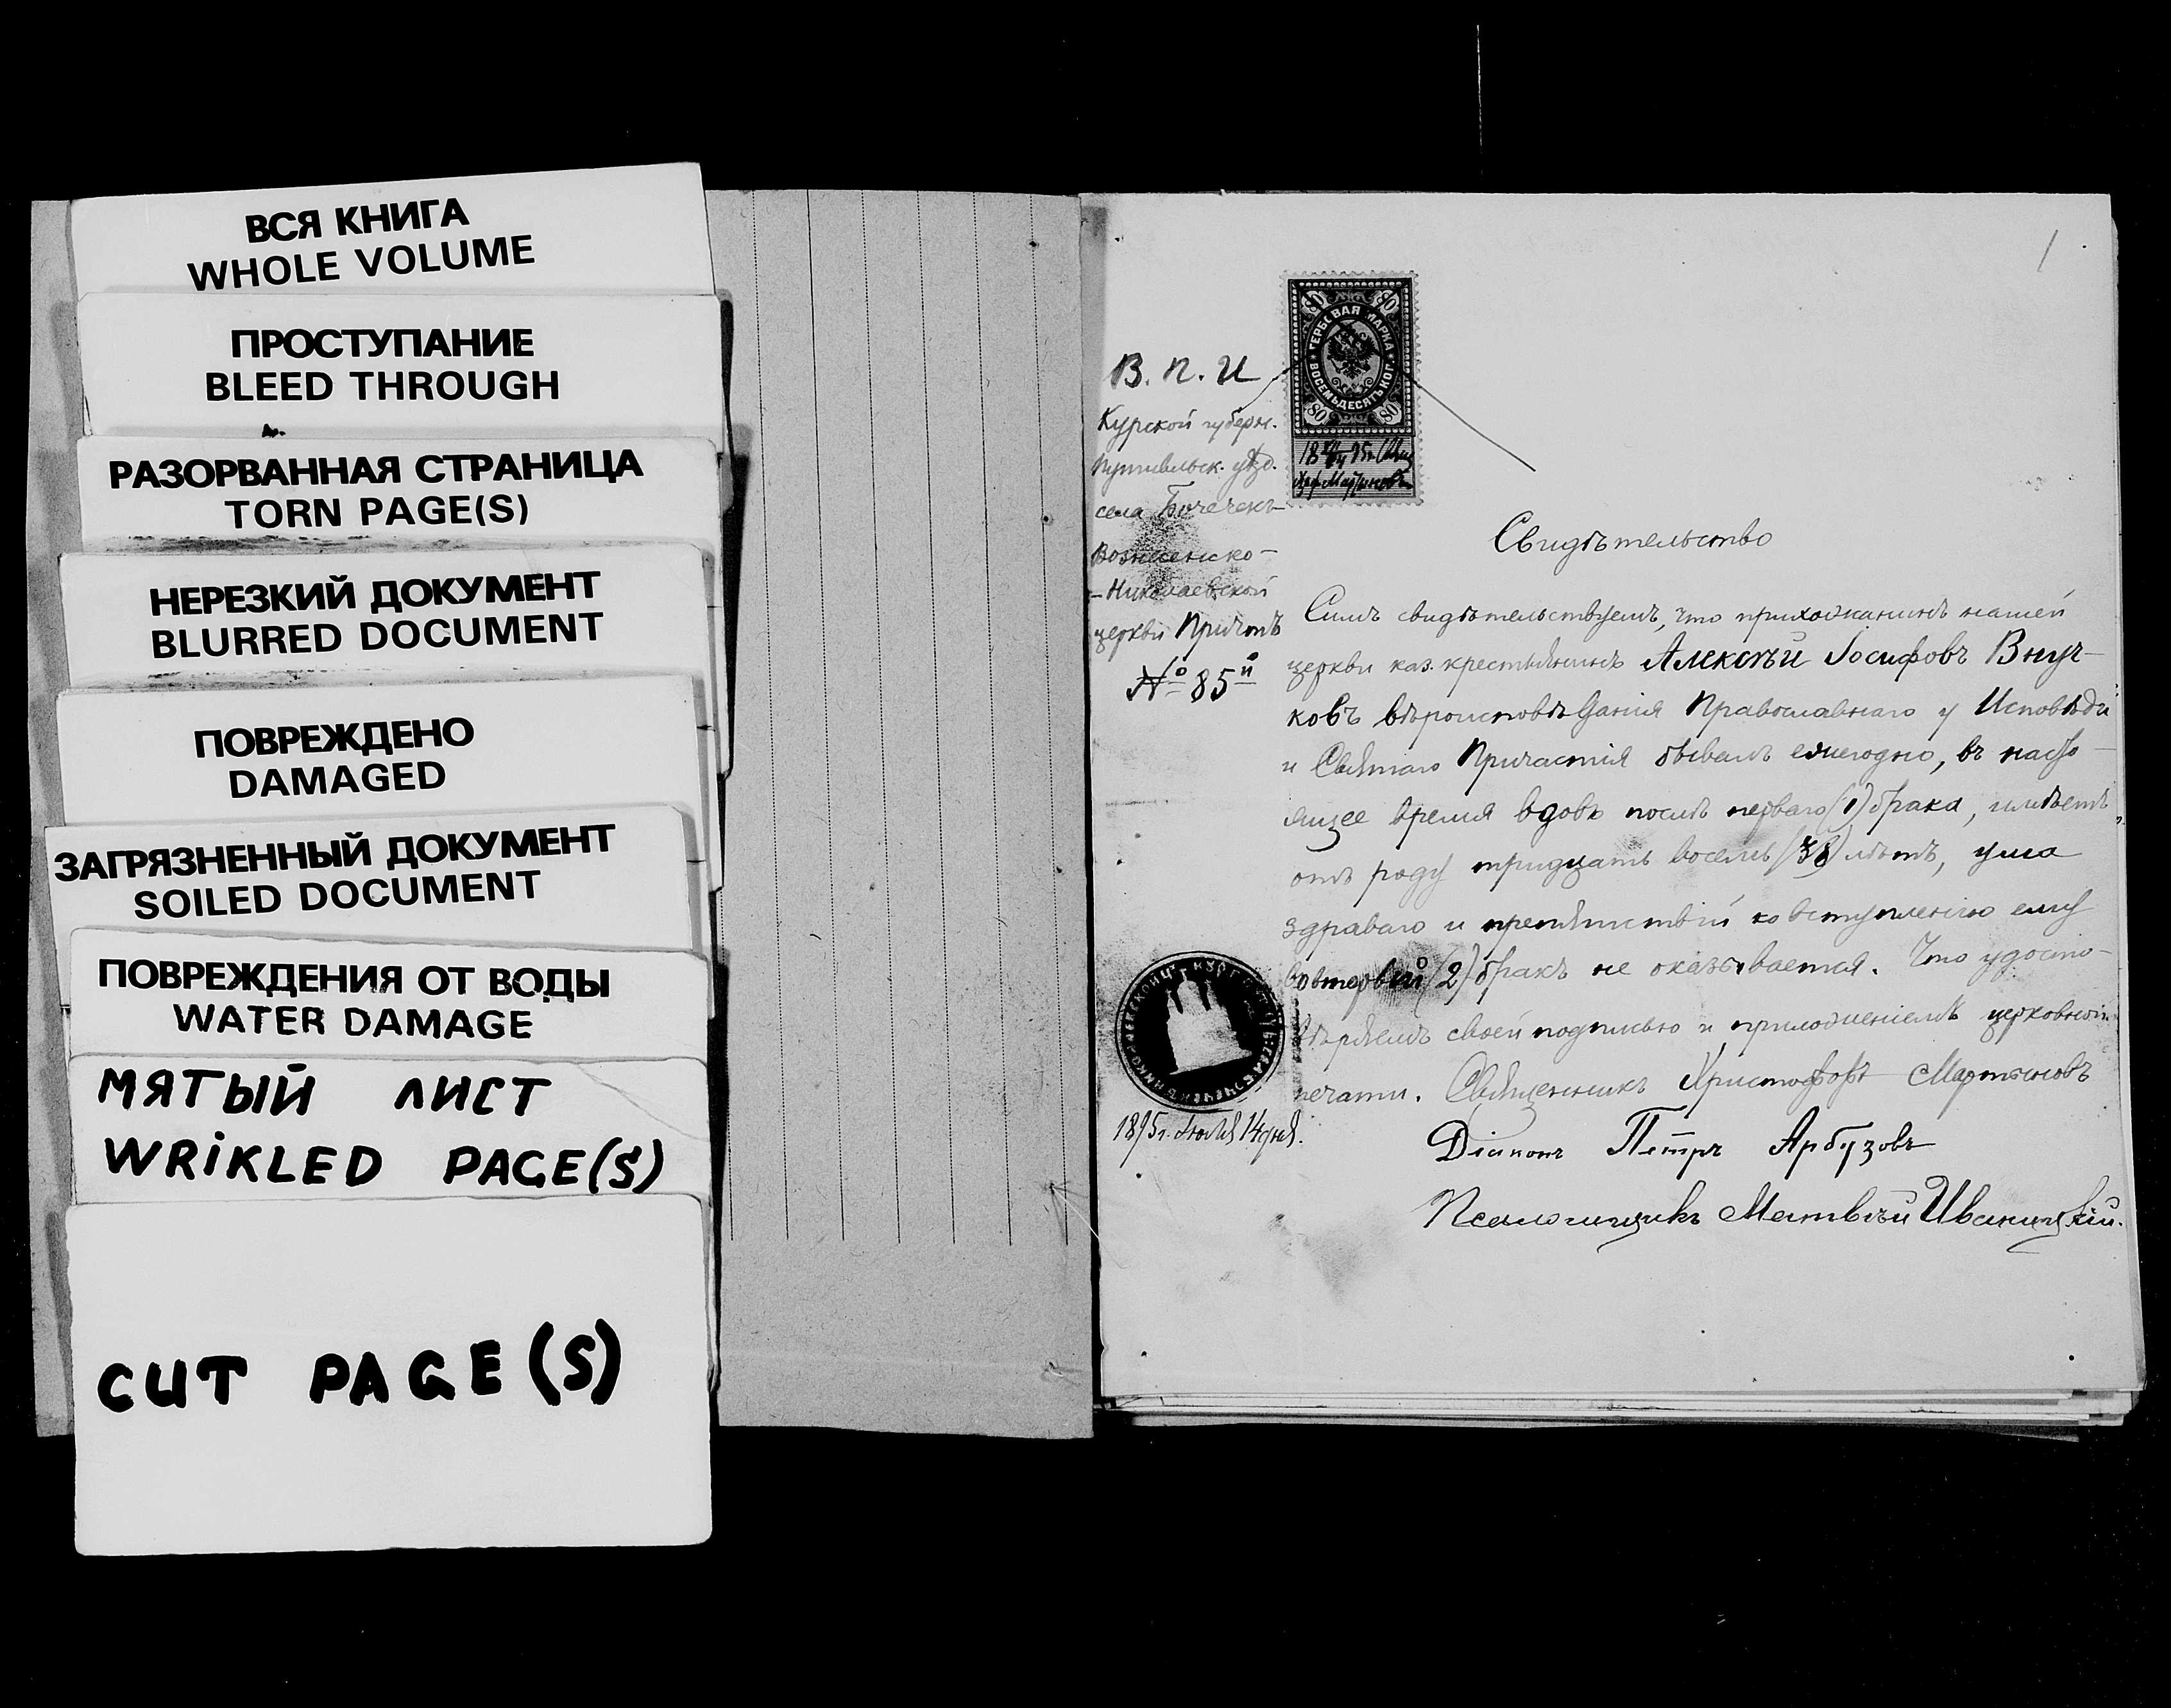 ВСЯ КНИГА
WHOLE VOLUME
ПРОСТУПАНИЕ
BLEED THROUGH
РАЗОРВАННАЯ СТРАНИЦА
TORN PAGE(S)
НЕРЕЗКИЙ ДОКУМЕНТ
BLURRED DOCUMENT
ПОВРЕЖДЕНО
DAMAGED
ЗАГРЯЗНЕННЫЙ ДОКУМЕНТ
SOILED DOCUMENT
ПОВРЕЖДЕНИЯ ОТ ВОДЫ
WATER DAMAGE
МЯТЫЙ ЛИСТ
WRiKLED PAGE(S)
CUT PAGE(S)
1
80 80
ГЕРБОВАЯ МАРКА
ВОСЕМЬДЕСЯТЪ КОП.
80 80
В. П. И
Курской губерн.
Путивльск. уѣзд.
села Бочечекъ
Вознесенско-
-Николаевской
церкви Причтъ
№ 85й
Свидѣтельство
Симъ свидѣтельствуемъ, что прихожанинъ нашей
церкви каз. крестьянинъ Алексѣй Іосифовъ Внуч-
ковъ вѣроисповѣданія Православнаго у Исповѣди
и Святаго Причастія бываетъ ежегодно, въ насто-
ящее время вдовъ послѣ перваго (1) брака, имѣетъ
отъ роду тридцать восемь (38) лѣтъ, ума
здраваго и препятствій ко вступленію ему
во второй (2) бракъ не оказывается. Что удосто-
вѣряемъ своей подписью и приложеніемъ церковной
печати. Священникъ Христофоръ Мартыновъ
Діаконъ Петръ Арбузовъ
Псаломщикъ Матвѣй Иваницкій.
1895г. Іюля 14 дня.